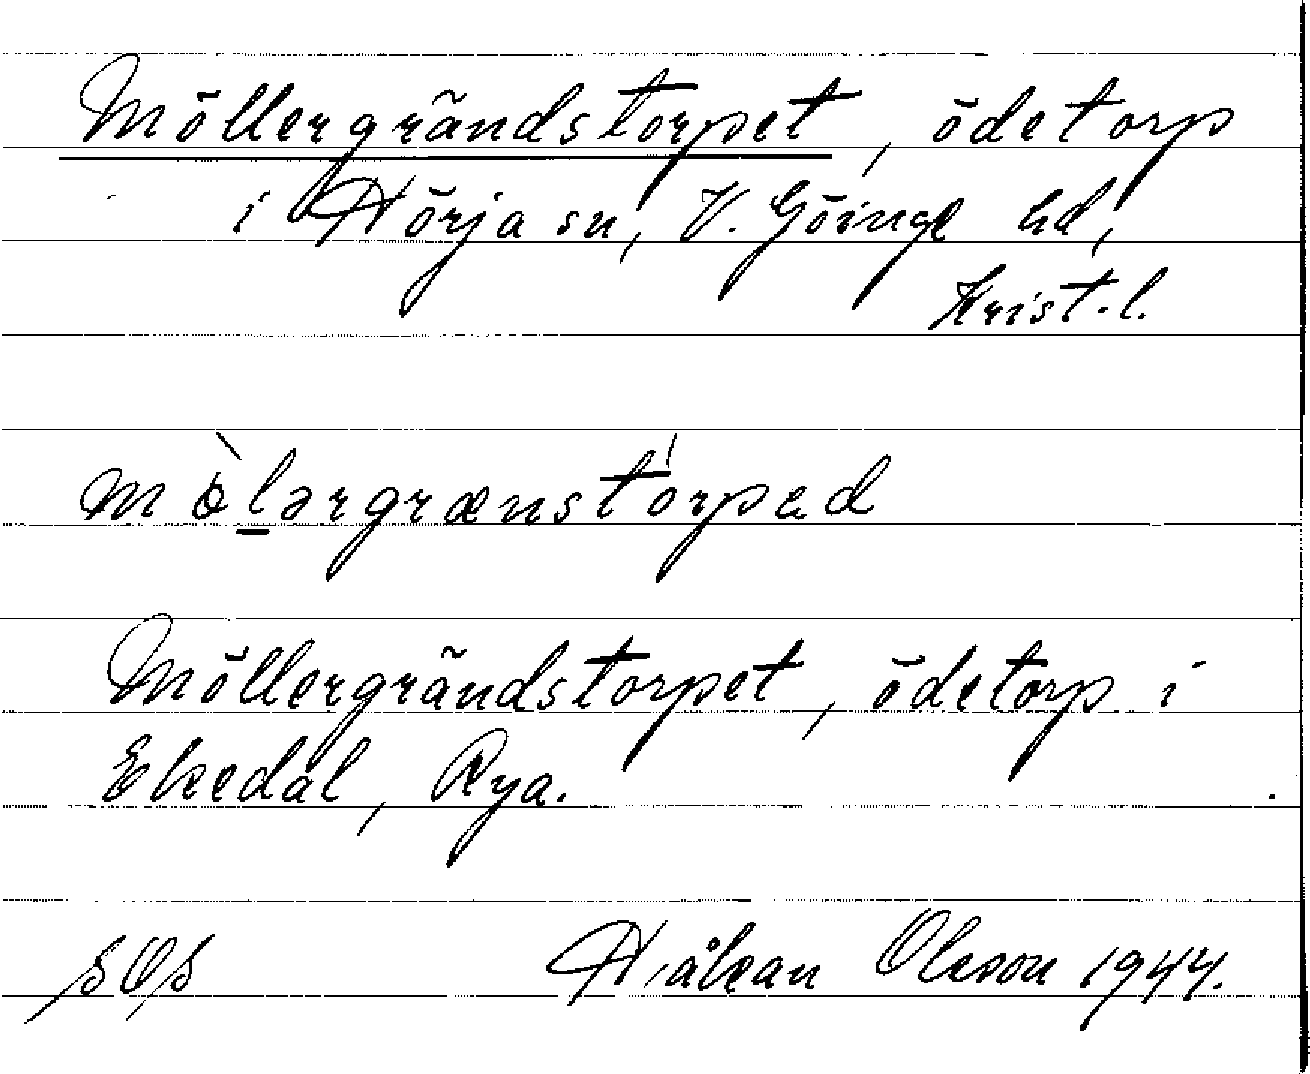 Möllergrändstorpet, ödetorp
i Hörja sn, V. Göinge hd,
Krist. l.
mö̀lərgrænstórpəd
Möllergrändstorpet, ödetorp i
Ekedal, Rya.
Håkan Olsson 1944.